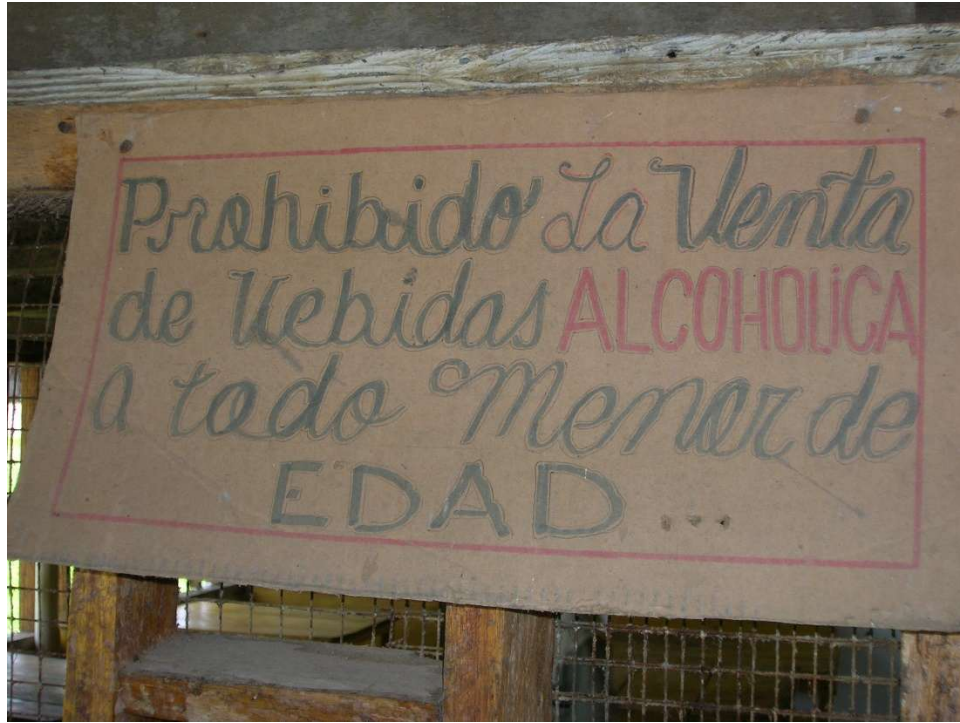 Prohibido La Venta
de Vebidas ALCOHOLICA
a todo Menor de
EDAD ...